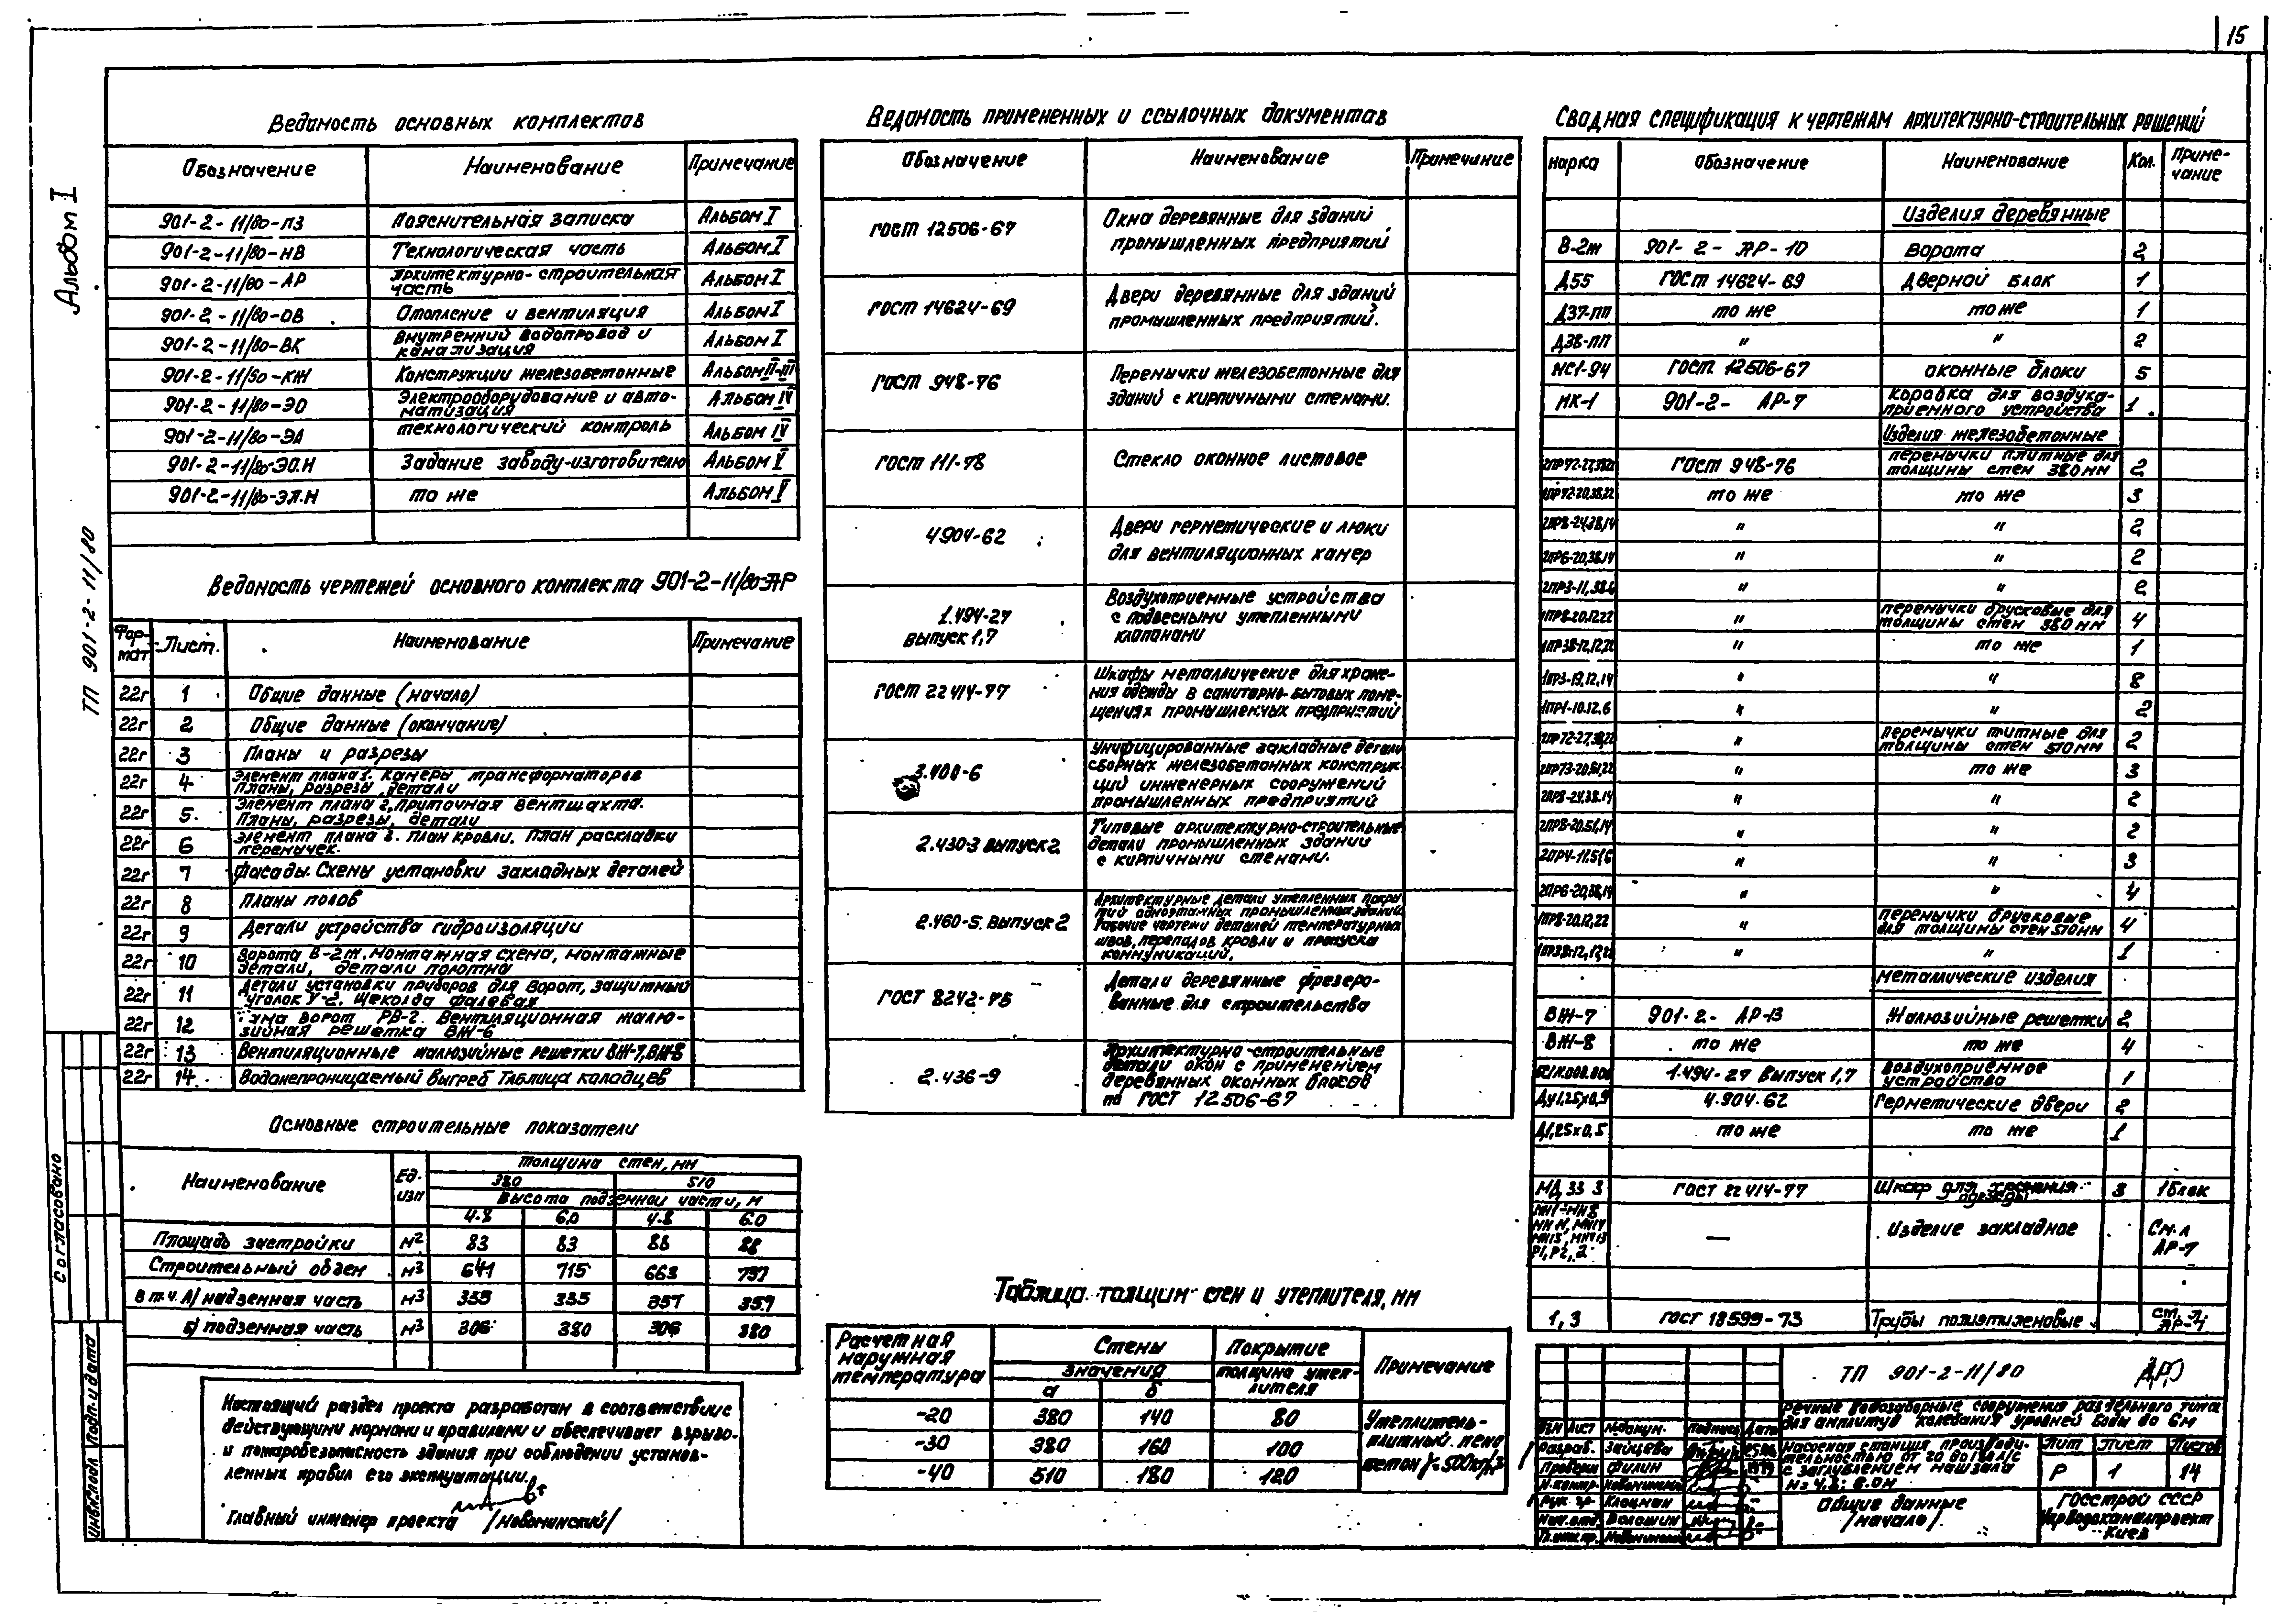 15
Альбом I
ТП 901-2-11/80
Ведомость основных комплектов
Обозначение Наименование Примечание
901-2-11/80-ПЗ Пояснительная записка Альбом I
901-2-11/80-НВ Технологическая часть Альбом I
901-2-11/80-АР Архитектурно-строительная часть Альбом I
901-2-11/80-ОВ Отопление и вентиляция Альбом I
901-2-11/80-ВК Внутренний водопровод и канализация Альбом I
901-2-11/80-КЖ Конструкции железобетонные Альбом II-III
901-2-11/80-ЭО Электрооборудование и автоматизация Альбом IV
901-2-11/80-ЭА технологический контроль Альбом IV
901-2-11/80-ЭО.Н Задание заводу-изготовителю Альбом V
901-2-11/80-ЭА.Н то же Альбом V
Ведомость чертежей основного комплекта 901-2-11/80-АР
Формат Лист. Наименование Примечание
22г 1 Общие данные (начало)
22г 2 Общие данные (окончание)
22г 3 Планы и разрезы
22г 4 Элемент плана 1. Камеры трансформаторов
Планы, разрезы, детали
22г 5. Элемент плана 2, приточная вентшахта.
Планы, разрезы, детали
22г 6 Элемент плана 3. План кровли. План раскладки
перемычек.
22г 7 Фасады. Схемы установки закладных деталей
22г 8 Планы полов
22г 9 Детали устройства гидроизоляции
22г 10 Ворота В-2ж. Монтажная схема, монтажные
детали, детали полотна
22г 11 Детали установки приборов для ворот, защитный
уголок У-2. Щеколда фалевая
22г 12 ворот РВ-2. Вентиляционная жалюзийная решетка ВЖ-6
22г 13 Вентиляционные жалюзийные решетки ВЖ-7, ВЖ-8
22г 14 Водонепроницаемый выгреб Таблица колодцев
Основные строительные показатели
Наименование Ед. изм толщина стен, мм
380 510
Высота подземной части, м
4.8 6.0 4.8 6.0
Площадь застройки м2 83 83 88 88
Строительный объем м3 641 715 663
в т.ч. А) надземная часть м3 335 335 357 357
б) подземная часть м3 306 380 306 380
Настоящий раздел проекта разработан в соответствие
действующими нормами и правилами и обеспечивает взрыво-
и пожаробезопасность здания при соблюдении установ-
ленных правил его эксплуатации.
Главный инженер проекта /Новоминский/
Ведомость примененных и ссылочных документов
Обозначение Наименование Примечание
ГОСТ 12506-67 Окна деревянные для зданий
промышленных предприятий
ГОСТ 14624-69 Двери деревянные для зданий
промышленных предприятий.
ГОСТ 948-76 Перемычки железобетонные для
зданий с кирпичными стенами.
ГОСТ 111-78 Стекло оконное листовое
4904-62 Двери герметические и люки
для вентиляционных камер
1.494-27
выпуск 1,7
Воздухоприемные устройства
с подвесными утепленными
клапанами
ГОСТ 22414-77 Шкафы металлические для хране-
ния одежды в санитарно-бытовых поме-
щениях промышленных предприятий
3.400-6 Унифицированные закладные детали
сборных железобетонных конструк-
ций инженерных сооружений
промышленных предприятий
2.430-3 выпуск 2 Типовые архитектурно-строительные
детали промышленных зданий
с кирпичными стенами.
2.460-5 выпуск 2 Архитектурные детали утепленных покры
тий одноэтажных промышленных зданий
Рабочие чертежи деталей температурных
швов, перепадов кровли и пропуска
коммуникаций.
ГОСТ 8242-75 Детали деревянные фрезеро-
ванные для строительства
2.436-9 Архитектурно-строительные
детали окон с применением
деревянных оконных блоков
по ГОСТ 12506-67
Таблица толщин стен и утеплителя, мм
Расчетная наружная температура Стены Покрытие Примечание
значения толщина утеп-
лителя
а б
-20 380 140 80
-30 380 160 100
-40 510 180 120
Утеплитель-
плитный пено
бетон γ=500кг/м3
Сводная спецификация к чертежам архитектурно-строительных решений
марка Обозначение Наименование Кол. Приме-
чание
Изделия деревянные
В-2ж 901-2- АР-10 Ворота 2
Д55 ГОСТ 14624-69 Дверной блок 1
Д37-ПП то же то же 1
Д38-ПП " " 2
НС1-94 ГОСТ 12506-67 оконные блоки 5
МК-1 901-2- АР-7 Коробка для воздухо-
приемного устройства 1
Изделия железобетонные
ГОСТ 948-76 перемычки плитные для
толщины стен 380мм 2
1ПР72-20.38.22 то же то же 3
2ПР8-24.38.14 " " 2
2ПР6-20.38.14 " " 2
2ПР3-11.38.6 " " 2
1ПР8-20.12.22 " перемычки брусковые для
толщины стен 380мм 4
1ПР38-12.12.22 " то же 1
1ПР3-19.12.14 " " 8
1ПР1-10.12.6 " " 2
" перемычки плитные для
толщины стен 510мм 2
2ПР73-20.51.22 " то же 3
2ПР8-24.38.14 " " 2
2ПР8-20.51.14 " " 2
2ПР4-11.51.6 " " 3
2ПР6-20.38.14 " " 4
1ПР8-20.12.22 " перемычки брусковые
для толщины стен 510мм 4
1ПР38-12.12.22 " " 1
Металлические изделия
ВЖ-7 901-2- АР-13 Жалюзийные решетки 2
ВЖ-8 то же то же 4
1.494-27 Выпуск 1,7 воздухоприемное
устройства 1
Ду1,25х0,9 4.904.62 Герметические двери 2
Д1,25х0,5 то же то же 1
МД 33 3 ГОСТ 22414-77 Шкаф для хранения
одежды 3 1блок
МН1-МН8
МН11, МН14
Р1, Р2, 2
— Изделие закладное См. л
АР-7
1, 3 ГОСТ 18599-73 Трубы полиэтиленовые см. л
ТП 901-2-11/80 АР
Речные водозаборные сооружения раздельного типа
для амплитуд колебания уровней воды до 6м
Изм Лист №докум. Подпись Дата
Разраб. Зайцева
Проверил Филин
Н.контр. Новоминский
Рук. гр. Клоцман
Нач. отд. Волошин
Гл.инж.пр. Новоминский
Насосная станция производи-
тельностью от 20 до л/с
с заглублением машзала
Н= 4,8; 6.0м
Лит Лист Листов
Р 1 14
Общие данные
/начало/.
Госстрой СССР
Укрводоканалпроект
Киев
Согласовано
Инв.№подл Подп. и дата